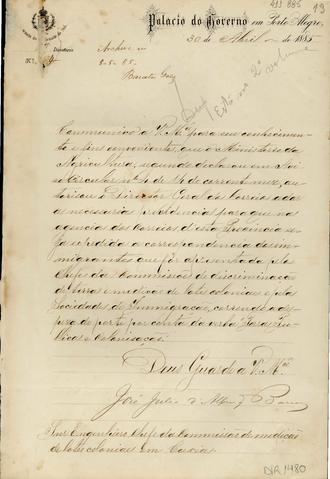 413 885 19
Palacio do Governo em Porto Alegre,
30 de Abril de 1885
Directoria
N. 4
Archive-se
8-5-85.
Barata Goes
Dup
Está no 2º volume
Communico a V. Mce. para seu conhecimen-
to e fins convenientes, que o Ministerio da
Agricultura, segundo declarou em Avi-
so Circular nº 4 de 14 do corrente mez, au-
torisou o Director Geral dos Correios a dar
as necessarias providencias para que nas
agencias dos Correios d'esta Provincia se-
ja expedida a correspondencia de im-
migrantes que fôr apresentada pelo
Chefe da Commissão de discriminação
de terras e medição de lotes coloniaes e pelas
Sociedades de Immigração, correndo a des-
peza de porte por conta da verba Terras Pu-
blicas e Colonisação.
Deus Guarde a V. Mce.
José Julio d'Albuq. Barros
Snr. Engenheiro Chefe da Commissão de medição
de lotes coloniaes em Caxias
DIR 1480